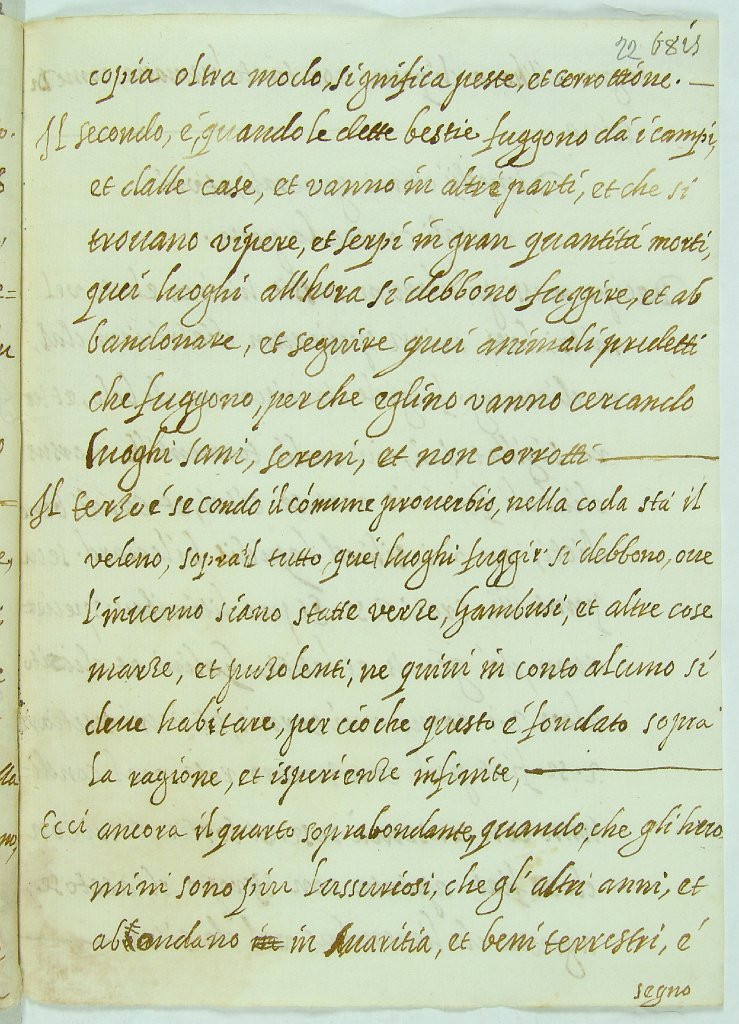 22 68is
copia oltra modo, significa peste, et corrottione. —
Il secondo, é, quando le dette bestie fuggono da i campi,
et dalle case, et vanno in altre parti, et che si
trouano vipere, et serpi in gran quantità morti,
quei luoghi allhora si debbono fuggire, et ab
bandonare, et seguire quei animali predetti
che fuggono, perche eglino vanno cercando
luoghi sani, sereni, et non corrotti —
Il terzo é secondo il cómune prouerbio, nella coda stà il
veleno, sopra'l tutto, quei luoghi fuggir si debbono, oue
l'inuerno siano statte verze, gambusi, et altre cose
marze, et puzolenti, ne quiui in conto alcuno si
deue habitare, percioche questo é fondato sopra
la ragione, et isperienze infinite, —
Ecci ancora il quarto soprabondante, quando, che gli huo
mini sono piu lussuriosi, che gl'altri anni, et
abbondano in Auaritia, et beni terrestri, é
segno